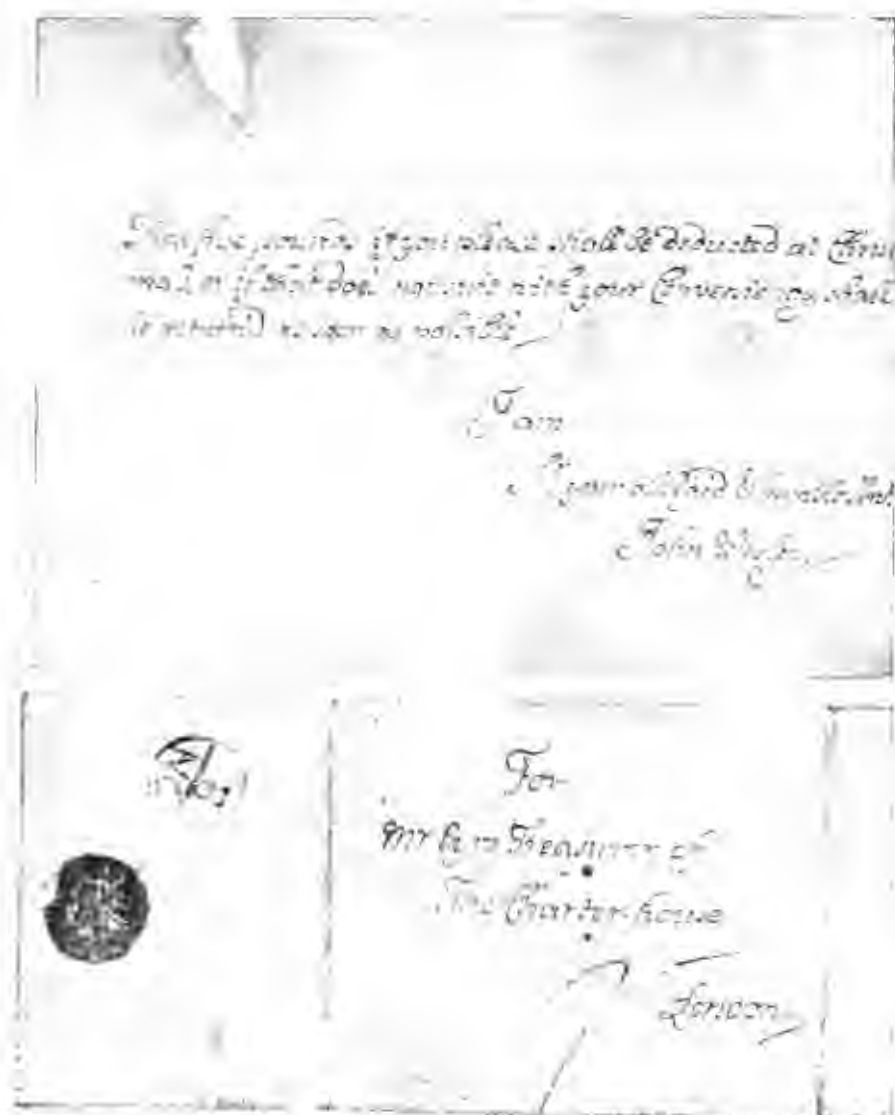 five pounds if you please shall be deducted at Chris
mas, or if that does not suite with your Conveniency shall
be return'd as soon as possible
I am
your oblig'd & humble
John
For
Mr Treasurer of
The Charter-house
London